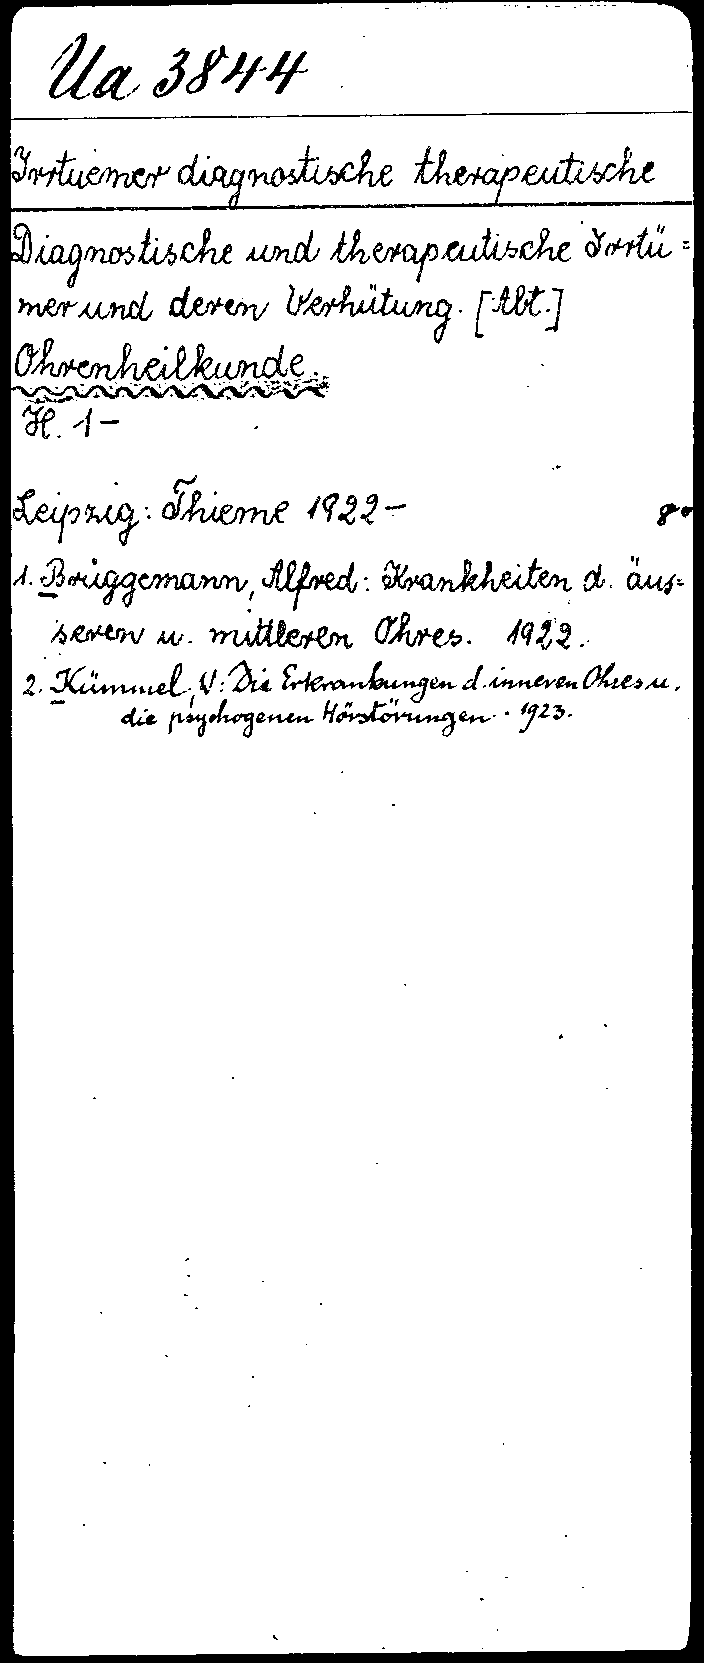 Ua 3844
Irrtuemer diagnostische therapeutische
Diagnostische und therapeutische Irrtü=
mer und deren Verhütung. [Abt.]
Ohrenheilkunde.
H. 1-
Leipzig: Thieme 1922- 8°
1. Brüggemann, Alfred: Krankheiten d. äus=
seren u. mittleren Ohres. 1922.
2. Kümmel, W: Die Erkrankungen d. inneren Ohres u.
die psychogenen Hörstörungen. 1923.